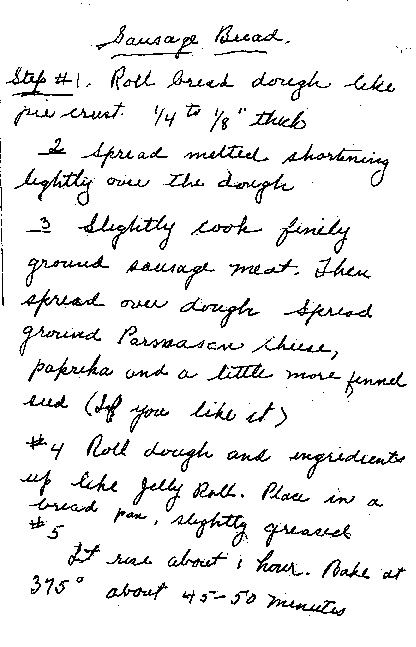 Sausage Bread.
Step #1. Roll bread dough like
pie crust. 1/4 to 1/8" thick
2 Spread melted shortening
lightly over the dough
3 Slightly cook finely
ground sausage meat. Then
spread over dough Spread
ground Parmasan cheese,
paprika and a little more fennel
seed (If you like it)
#4 Roll dough and ingredients
up like Jelly Roll. Place in a
bread pan, slightly greased
#5
Let rise about 1 hour. Bake at
375° about 45-50 minutes